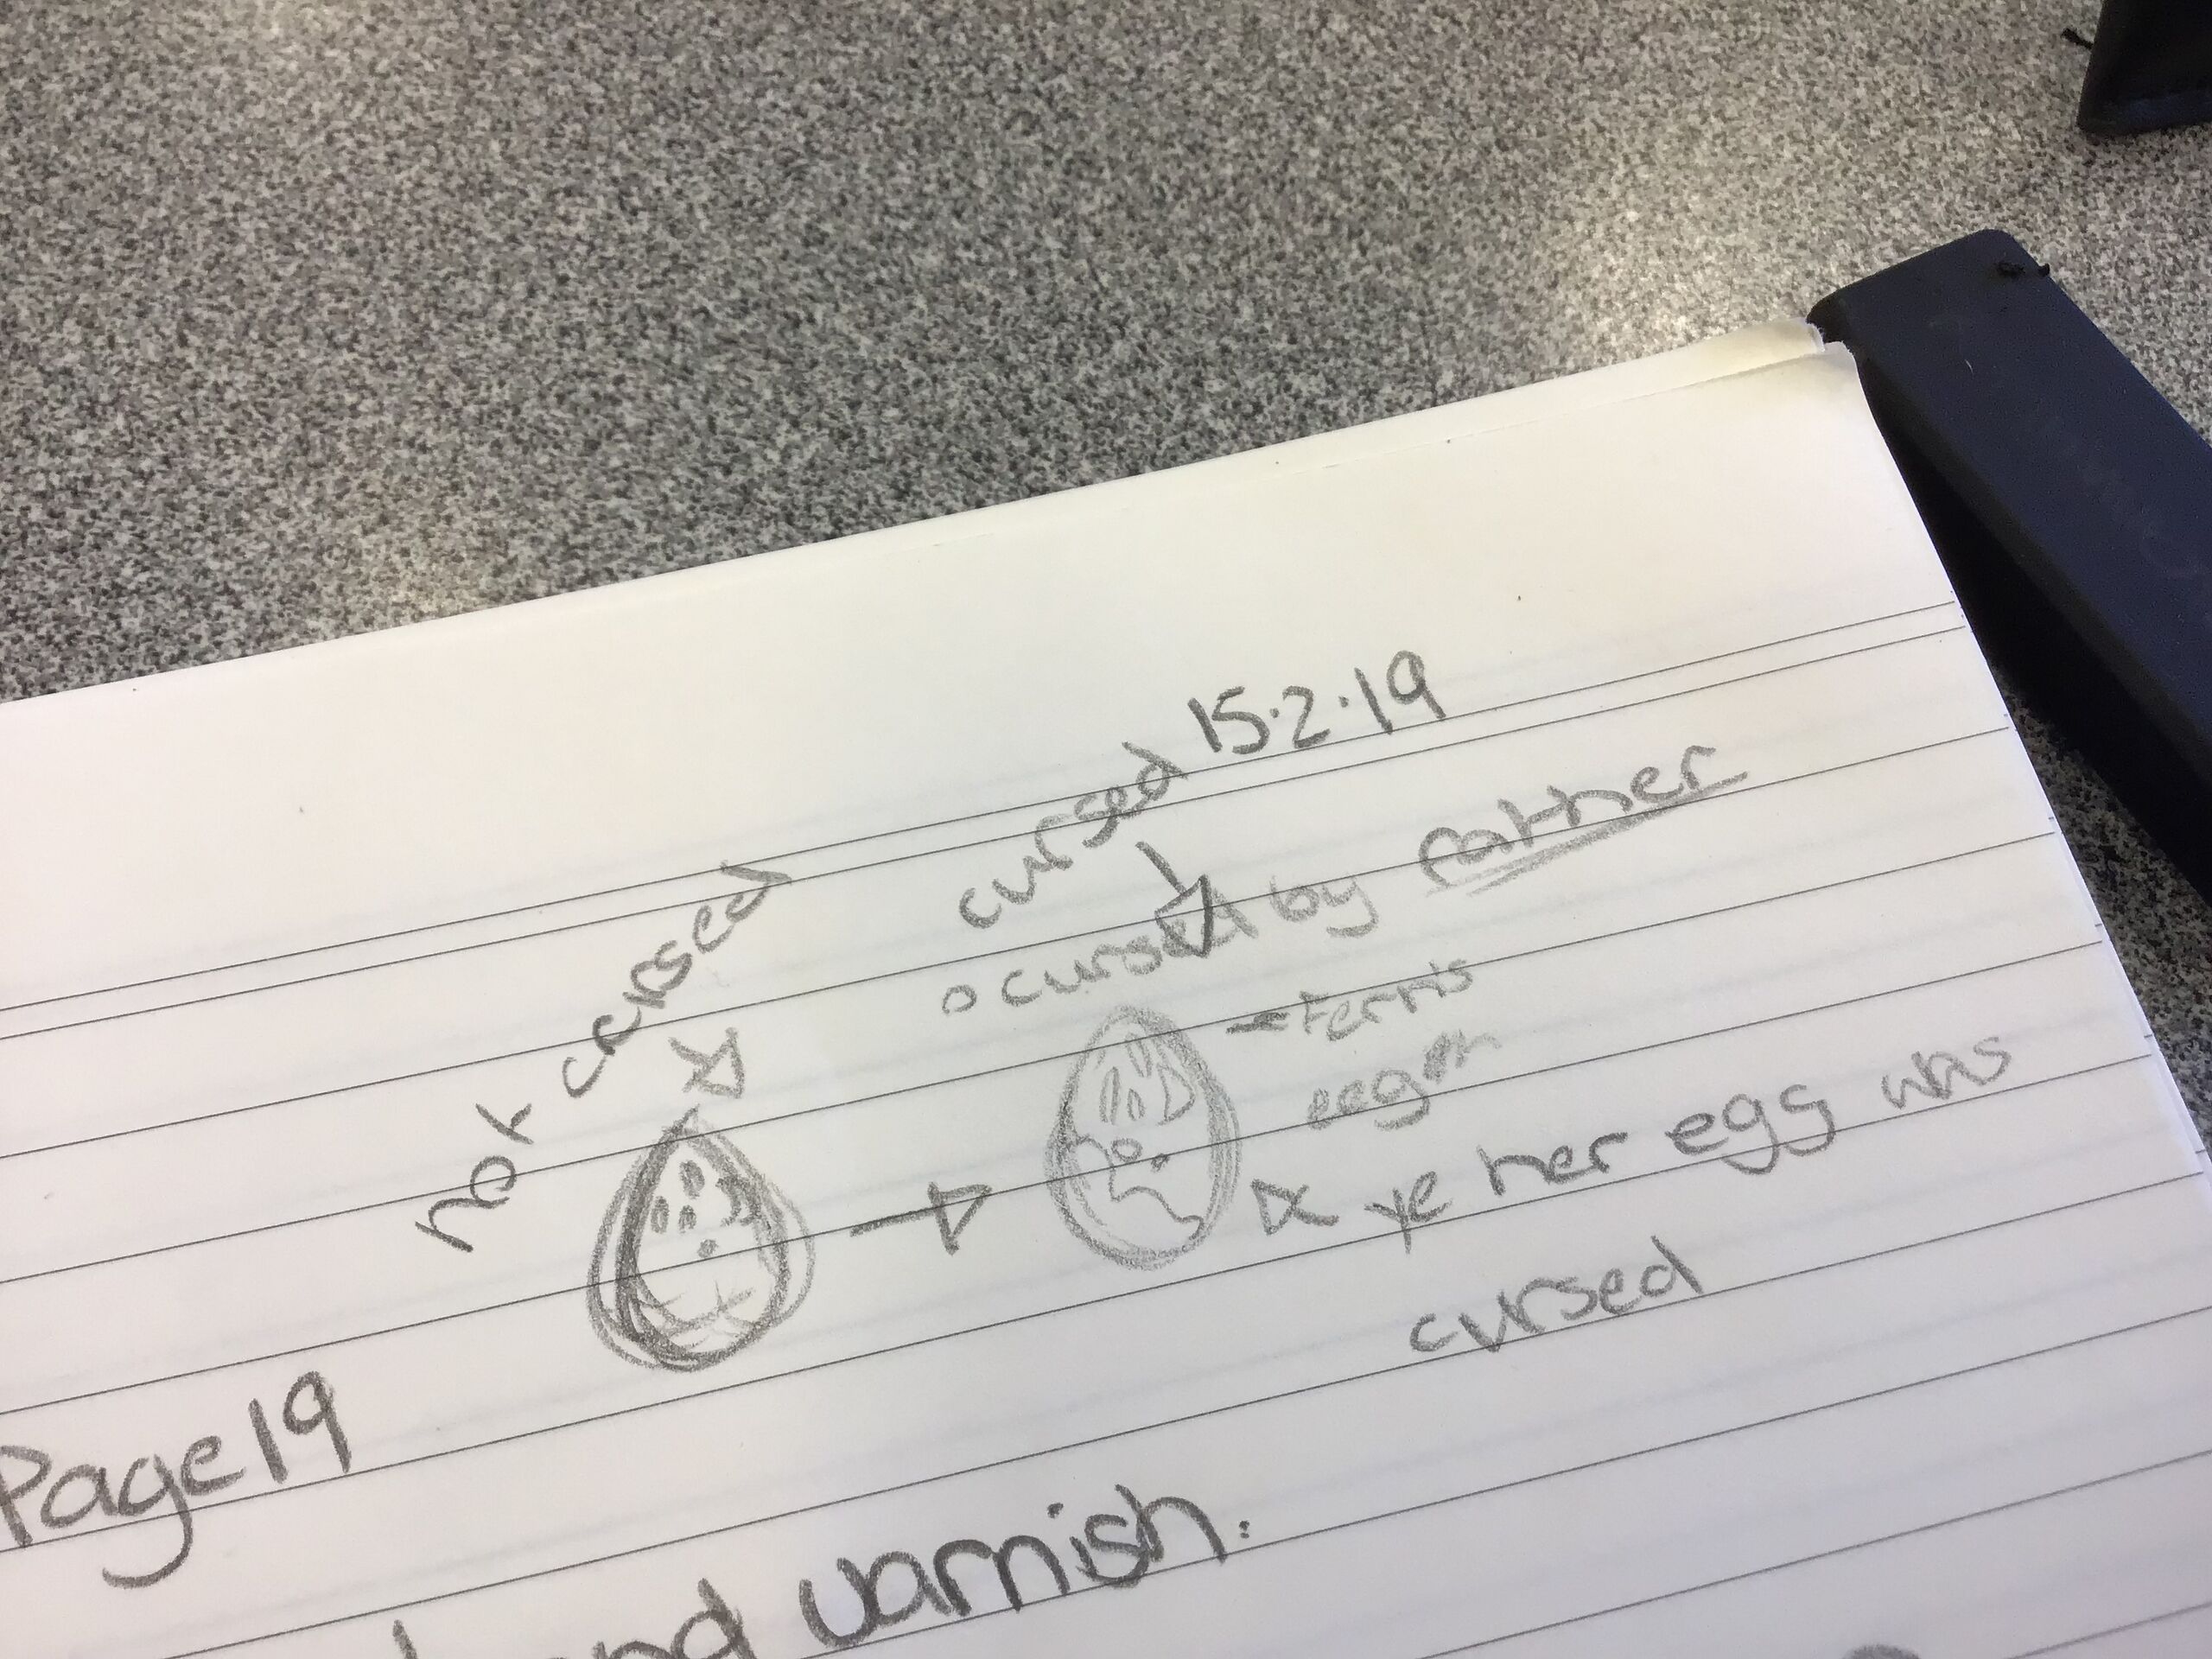 15.2.19
cursed
not cursed
cursed by father
Ferris
eeg
ye her egg was
cursed
Page 19
and varnish: